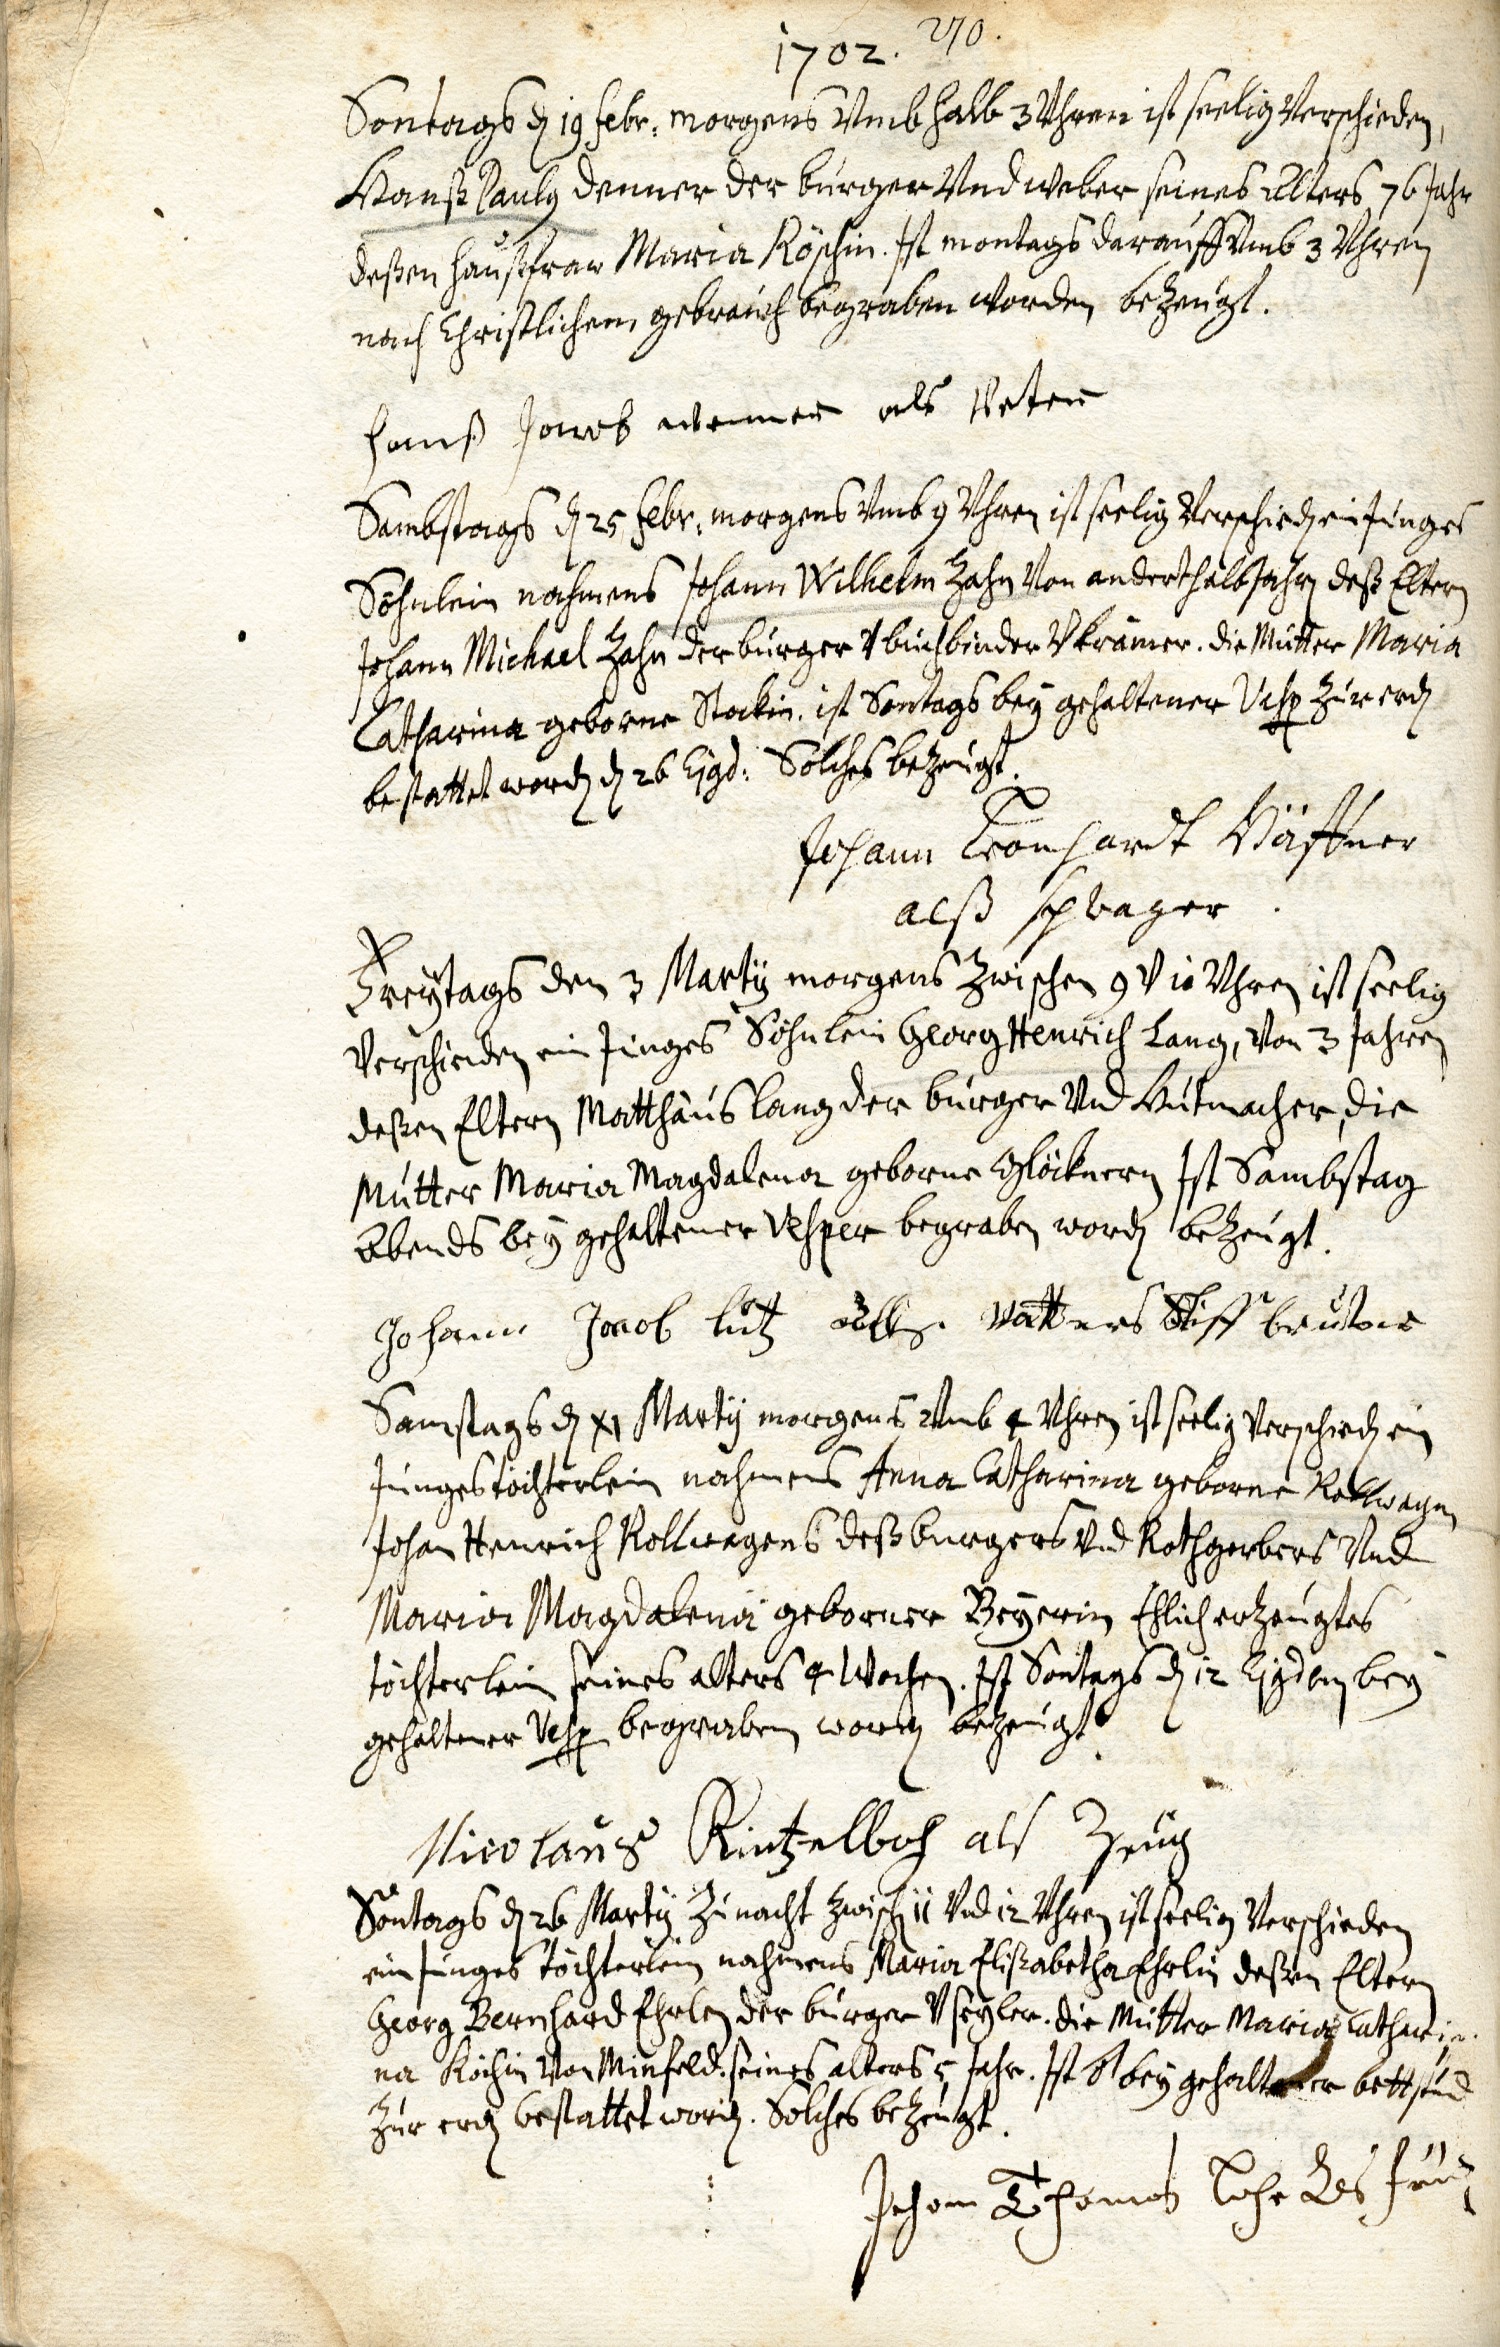 1702. 270.
Sontags d 19 febr: morgens Vmb halb 3 Vhren ist seelig Verschieden,
Hanß Pauly denner der burger Vnd weber seines Alters 76 Jahr
deßen haußfraw Maria Röschin. Ist montags darauff Vmb 3 Vhren
nach Christlichem gebrauch begraben worden bezeugt.
hanß Jacob als Veter
Sambstags d 25 febr: morgens Vmb 9 Vhren ist seelig Verschied ein Junges
Söhnlein nahmens Johann Wilhelm Zahn Von anderthalb Jahr deß Eltern
Johann Michael Zahn der burger V buchbinder V kramer. die Mutter Maria
Catharina geborne Stockin. ist Sontags bey gehaltener Vesp zur erd
bestattet word d 26 Ejusd: Solches bezeugt.
Johann Leonhardt Häffner
alß schwager.
Freytags den 3 Martij morgens zwischen 9 V 10 Vhren ist seelig
Verschieden ein Junges Söhnlein Georg Henrich Lang, Von 3 Jahren
deßen Eltern Matthäus Lang der burger Vnd Hutmacher, die
Mutter Maria Magdalena geborne Glöcknern Ist Sambstag
Abends bey gehaltener Vesper begraben word bezeugt.
Johann Jacob Lutz Vatters Stiff bruder
Samstags d XI Martij morgens Vmb 4 Vhren ist seelig Verschied ein
Junges töchterlein nahmens Anna Catharina geborne Rollwagen
Johan Henrich Rollwagens deß burgers Vnd Rothgerbers Vnd
Maria Magdalena geborner Beyerin Ehlich erzeugtes
töchterlein seines alters 4 Wochen. Ist Sontags d 12 Ejusdem bey
gehaltener Vesp begraben word bezeugt.
Nicolaus Rintzelboch als Zeug
Sontags d 26 Martij Zu nacht zwisch 11 Vnd 12 Vhren ist seelig Verschieden
ein Junges Töchterlein nahmens Maria Elißabetha Ehrlin deßen Eltern
Georg Bernhard Ehrlen der burger V seyler. die Mutter Maria Catharin
na Köchin Von Minfeld. seines alters 5 Jahr. Ist bey gehaltener bettstund
zur erd bestattet word. Solches bezeugt.
Johan Thomas